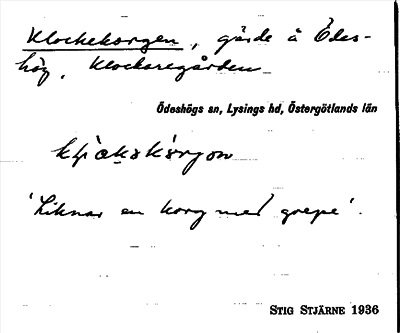 Klockekorgen, gärde å Ödes-
hög, Klockaregården
Ödeshögs sn, Lysings hd, Östergötlands län
'Liknar en korg med grepe'.
STIG STJÄRNE 1936